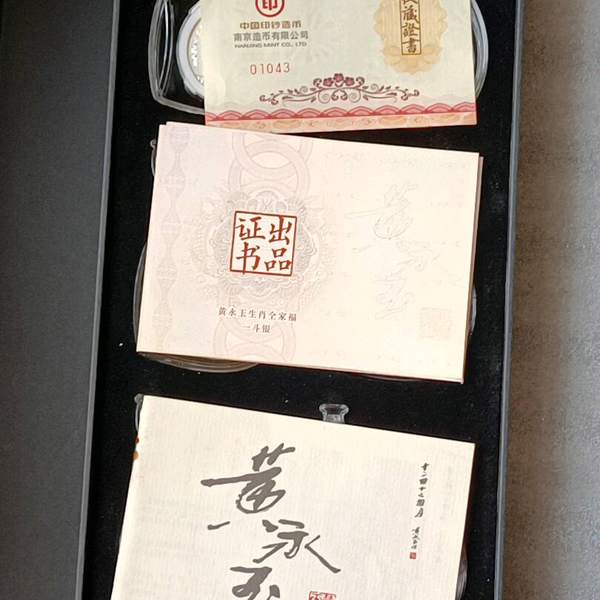 印
中国印钞造币
南京造币有限公司
NANJING MINT CO., LTD
01043
收藏證書
出品
证书
黄永玉生肖全家福
一斗银
黄永玉